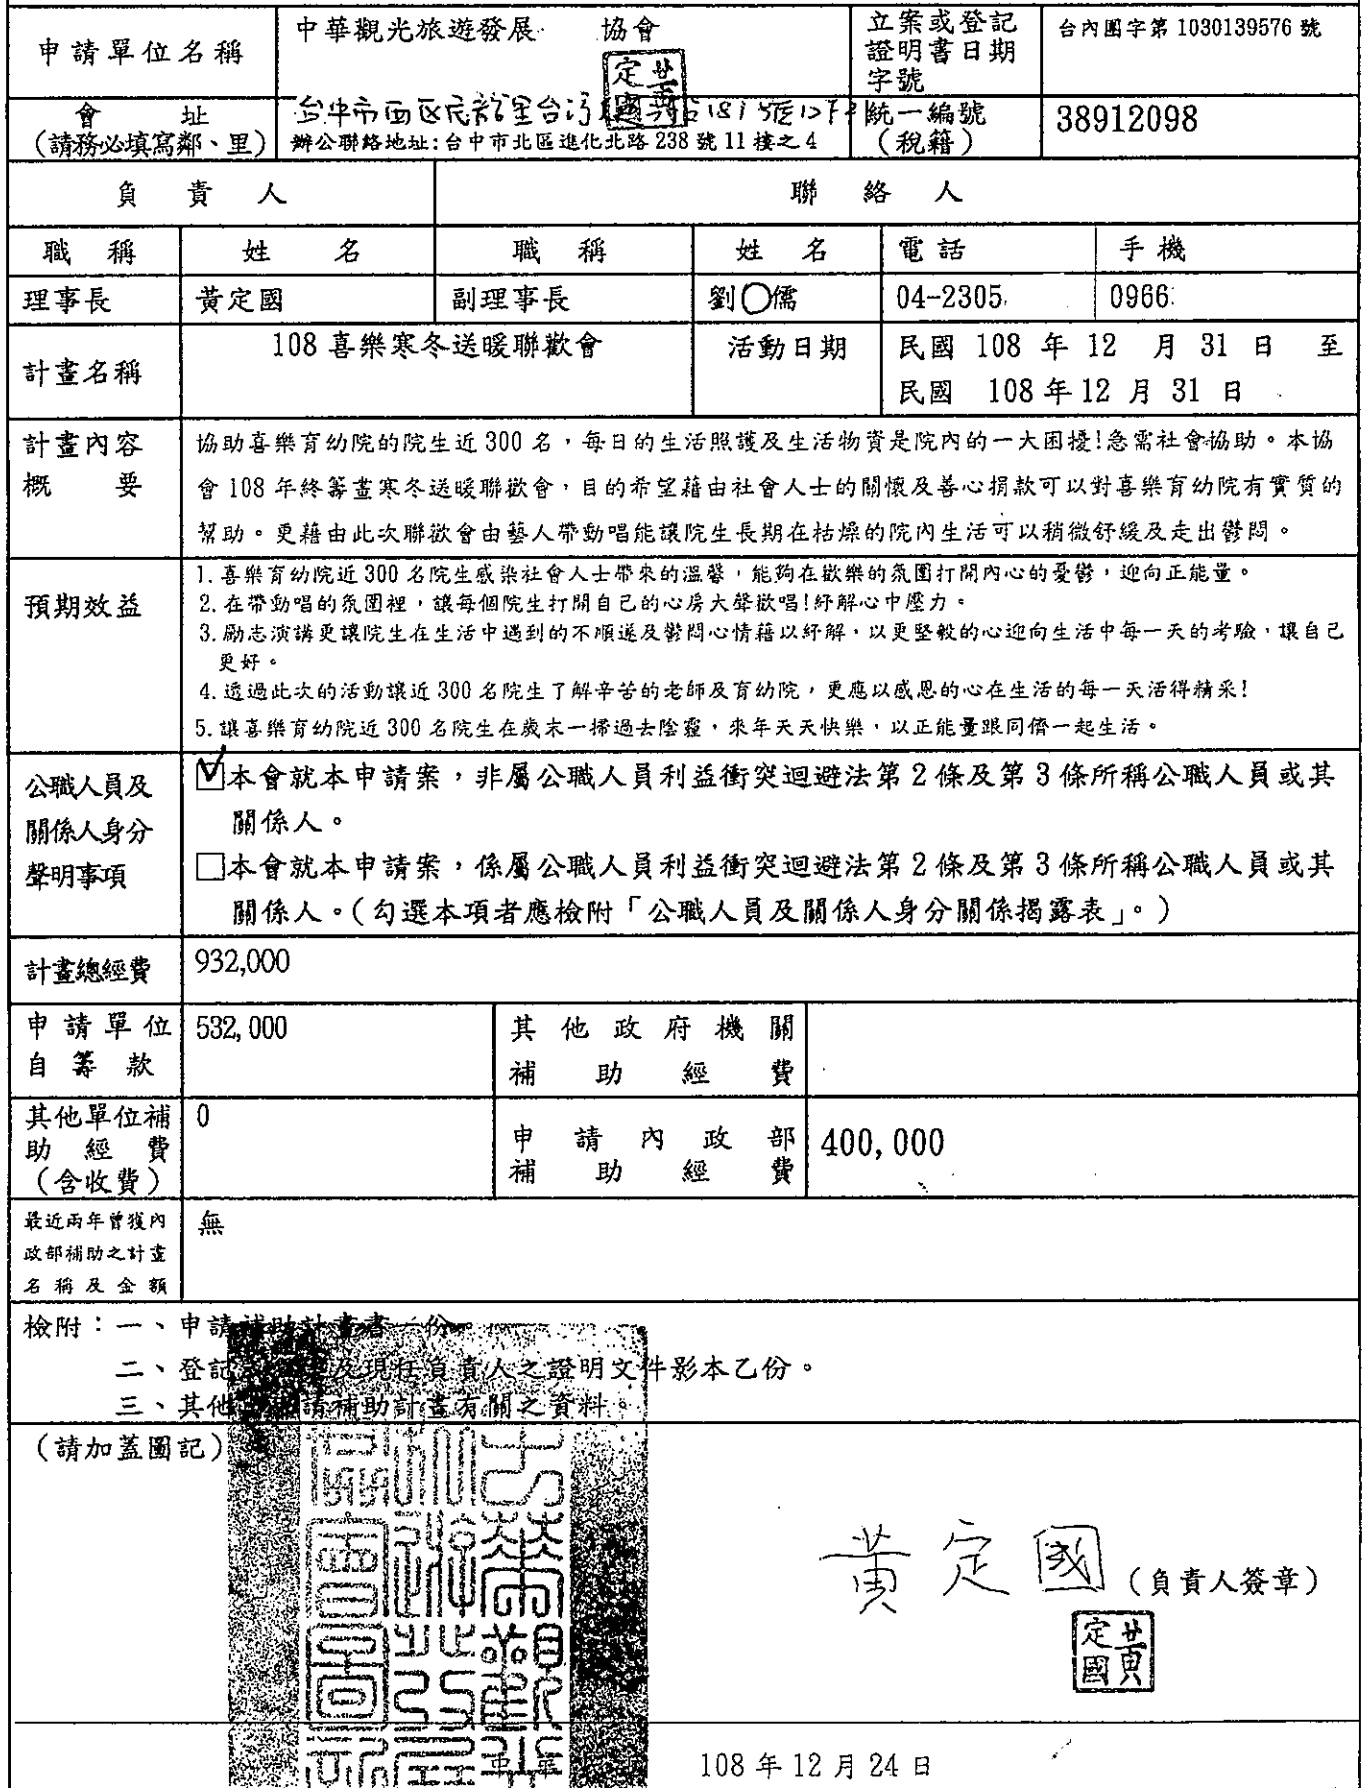 申請單位名稱
中華觀光旅遊發展 協會
立案或登記
證明書日期
字號
台內團字第 1030139576 號
會 址
(請務必填寫鄰、里)
台中市西区
號12F
辦公聯絡地址:台中市北區進化北路 238 號 11 樓之 4
統一編號
(稅籍)
38912098
負 責 人
聯 絡 人
職 稱
姓 名
職 稱
姓 名
電 話
手 機
理事長
黃定國
副理事長
劉〇儒
04-2305
0966
計畫名稱
108 喜樂寒冬送暖聯歡會
活動日期
民國 108 年 12 月 31 日 至
民國 108 年 12 月 31 日
計畫內容
概 要
協助喜樂育幼院的院生近 300 名,每日的生活照護及生活物資是院內的一大困擾!急需社會協助。本協
會 108 年終籌畫寒冬送暖聯歡會,目的希望藉由社會人士的關懷及善心捐款可以對喜樂育幼院有實質的
幫助。更藉由此次聯歡會由藝人帶動唱能讓院生長期在枯燥的院內生活可以稍微舒緩及走出鬱悶。
預期效益
1. 喜樂育幼院近 300 名院生感染社會人士帶來的溫馨,能夠在歡樂的氛圍打開內心的憂鬱,迎向正能量。
2. 在帶動唱的氛圍裡,讓每個院生打開自己的心房大聲歡唱!紓解心中壓力。
3. 勵志演講更讓院生在生活中遇到的不順遂及鬱悶心情藉以紓解,以更堅毅的心迎向生活中每一天的考驗,讓自己
更好。
4. 透過此次的活動讓近 300 名院生了解辛苦的老師及育幼院,更應以感恩的心在生活的每一天活得精采!
5. 讓喜樂育幼院近 300 名院生在歲末一掃過去陰霾,來年天天快樂,以正能量跟同儕一起生活。
公職人員及
關係人身分
聲明事項
☑本會就本申請案,非屬公職人員利益衝突迴避法第 2 條及第 3 條所稱公職人員或其
關係人。
□本會就本申請案,係屬公職人員利益衝突迴避法第 2 條及第 3 條所稱公職人員或其
關係人。(勾選本項者應檢附「公職人員及關係人身分關係揭露表」。)
計畫總經費
932,000
申請單位
自籌款
532,000
其他政府機關
補助經費
其他單位補
助經費
(含收費)
0
申請內政部
補助經費
400,000
最近兩年曾獲內
政部補助之計畫
名稱及金額
無
檢附:一、申請補助計畫書一份。
二、登記 及現任負責人之證明文件影本乙份。
三、其他 申請補助計畫有關之資料。
(請加蓋圖記)
黃定國 (負責人簽章)
黃定國
中 華 108 年 12 月 24 日